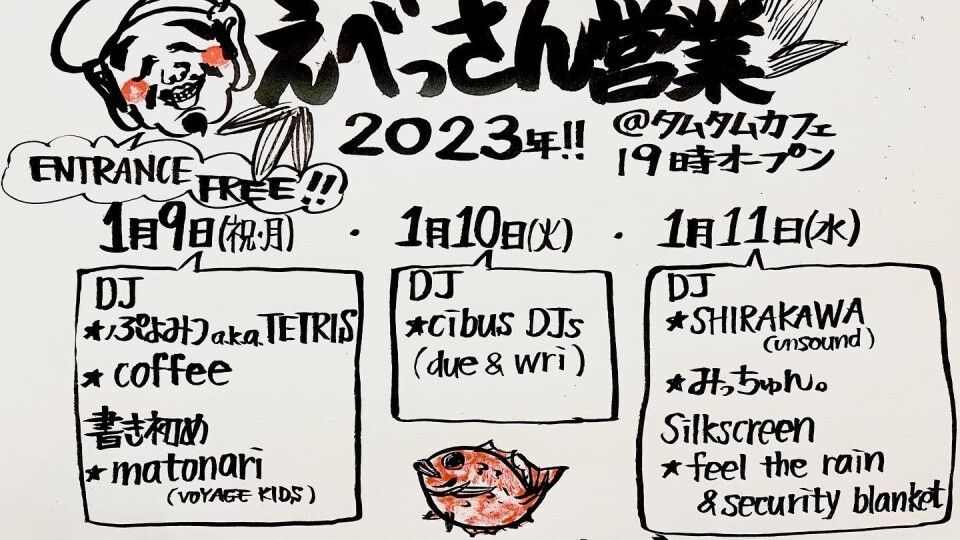 えべっさん営業
2023年!!
@タムタムカフェ
19時オープン
ENTRANCE
FREE!!
1月9日(祝・月)
DJ
★ぷよみつ a.k.a. TETRIS
★coffee
書き初め
★matonari
(VOYAGE KIDS)
・
1月10日(火)
DJ
★cibus DJs
(due & wri)
・
1月11日(水)
DJ
★SHIRAKAWA
(unsound)
★みっちゅん。
Silkscreen
★feel the rain
& security blanket